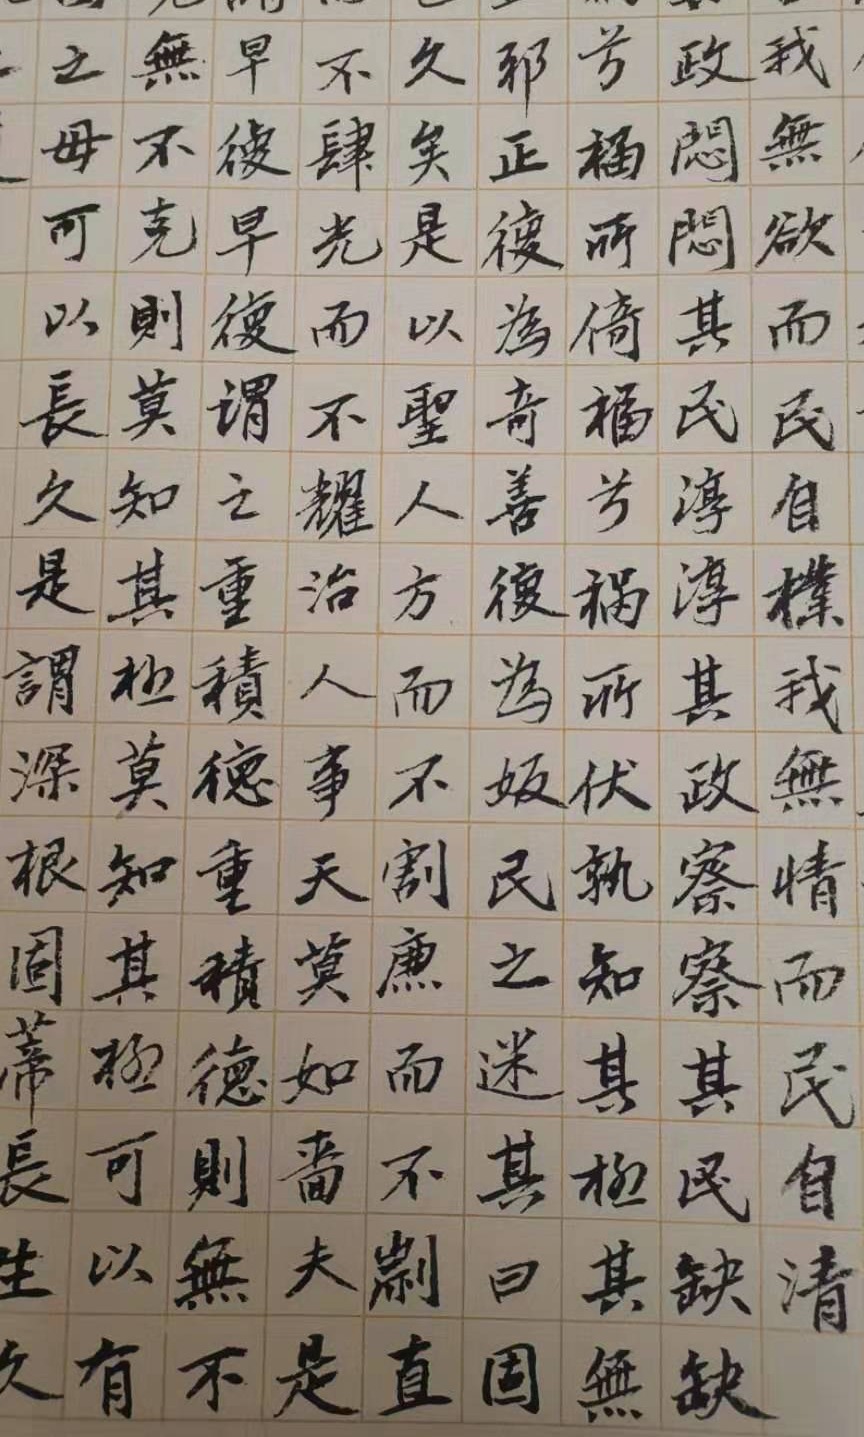 我無欲而民自樸我無情而民自清
政悶悶其民淳淳其政察察其民缺缺
兮福所倚福兮祸所伏孰知其極其無
邪正復為奇善復為妖民之迷其曰固
久矣是以聖人方而不割廉而不劌直
不肆光而不耀治人事天莫如嗇夫是
早復早復谓之重積德重積德則無不
無不克則莫知其極莫知其極可以有
之母可以長久是謂深根固蒂長生久